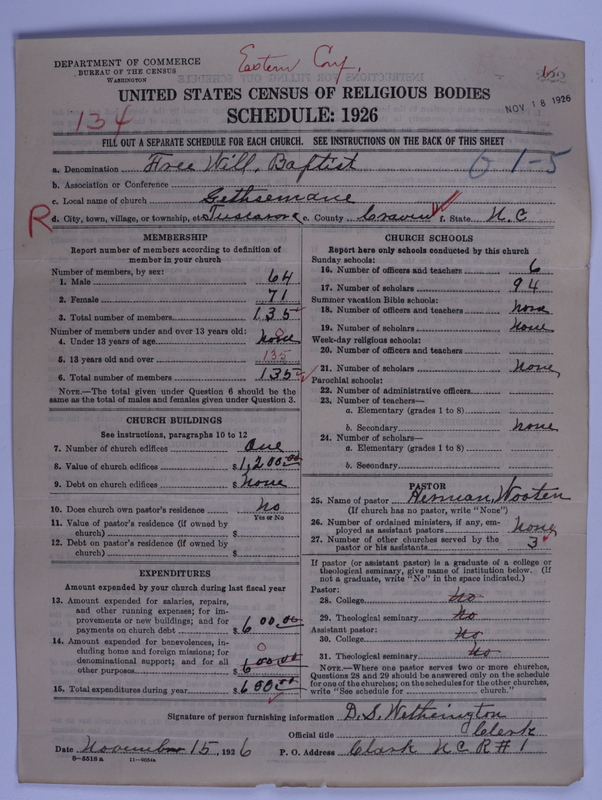 DEPARTMENT OF COMMERCE
BUREAU OF THE CENSUS
WASHINGTON
Eastern Conf.
NOV 18 1926
UNITED STATES CENSUS OF RELIGIOUS BODIES
134
SCHEDULE: 1926
FILL OUT A SEPARATE SCHEDULE FOR EACH CHURCH. SEE INSTRUCTIONS ON THE BACK OF THIS SHEET
a. Denomination Free Will Baptist
0 1-5
b. Association or Conference
c. Local name of church Gethsemane
R d. City, town, village, or township, etc. Tuscarora e. County Craven f. State N.C
MEMBERSHIP
Report number of members according to definition of
member in your church
Number of members, by sex:
1. Male 64
2. Female 71
3. Total number of members 135
Number of members under and over 13 years old:
4. Under 13 years of age none 0
5. 13 years old and over 135
6. Total number of members 135
NOTE.—The total given under Question 6 should be the
same as the total of males and females given under Question 3.
CHURCH BUILDINGS
See instructions, paragraphs 10 to 12
7. Number of church edifices One
8. Value of church edifices $1,200.00
9. Debt on church edifices $none
10. Does church own pastor's residence no
Yes or No
11. Value of pastor's residence (if owned by
church) $
12. Debt on pastor's residence (if owned by
church) $
EXPENDITURES
Amount expended by your church during last fiscal year
13. Amount expended for salaries, repairs,
and other running expenses; for im-
provements or new buildings; and for
payments on church debt $600.00
14. Amount expended for benevolences, in-
cluding home and foreign missions; for
denominational support; and for all
other purposes 0 $600.00
15. Total expenditures during year $600.00
CHURCH SCHOOLS
Report here only schools conducted by this church
Sunday schools:
16. Number of officers and teachers 6
17. Number of scholars 94
Summer vacation Bible schools:
18. Number of officers and teachers none
19. Number of scholars none
Week-day religious schools:
20. Number of officers and teachers
21. Number of scholars none
Parochial schools:
22. Number of administrative officers
23. Number of teachers—
a. Elementary (grades 1 to 8)
b. Secondary none
24. Number of scholars—
a. Elementary (grades 1 to 8)
b. Secondary
PASTOR
25. Name of pastor Herman Wooten
(If church has no pastor, write "None")
26. Number of ordained ministers, if any, em-
ployed as assistant pastors none
27. Number of other churches served by the
pastor or his assistants 3
If pastor (or assistant pastor) is a graduate of a college or
theological seminary, give name of institution below. (If
not a graduate, write "No" in the space indicated.)
Pastor:
28. College no
29. Theological seminary no
Assistant pastor:
30. College no
31. Theological seminary no
NOTE.—Where one pastor serves two or more churches,
Questions 28 and 29 should be answered only on the schedule
for one of the churches; on the schedules for the other churches,
write "See schedule for church."
Signature of person furnishing information D.S. Wetherington
Official title Clerk
Date November 15, 1926 P. O. Address Clark N C R # 1
8-5518 a 11-9054a